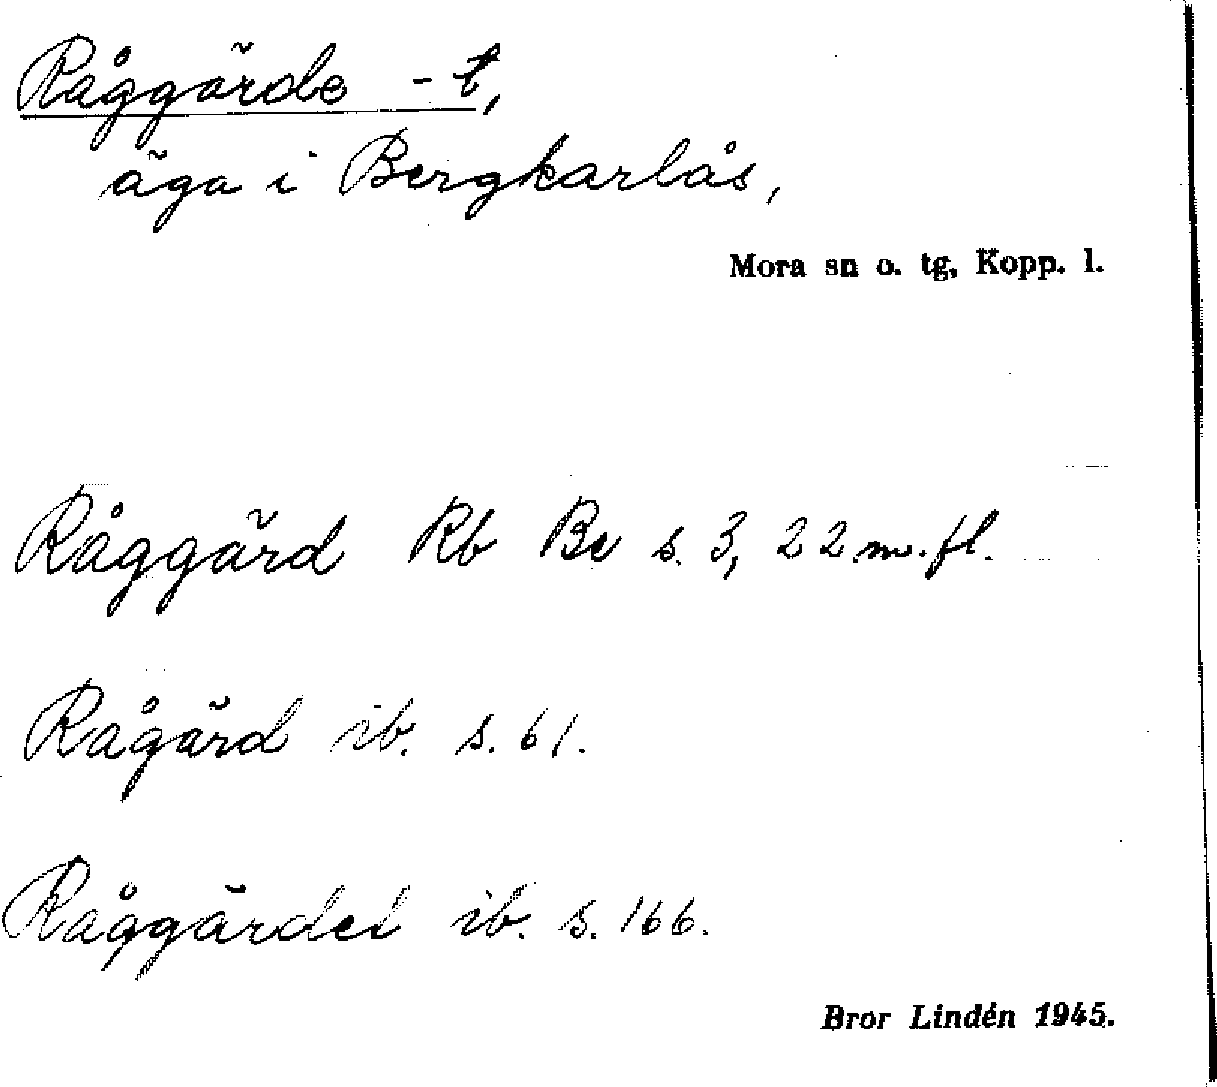 Råggärde -t,
äga i Bergkarlås,
Mora sn o. tg, Kopp. l.
Råggärd Rb Be s. 3, 22 m. fl.
Rågärd ib. s. 61.
Råggärdet ib. s. 166.
Bror Lindén 1945.